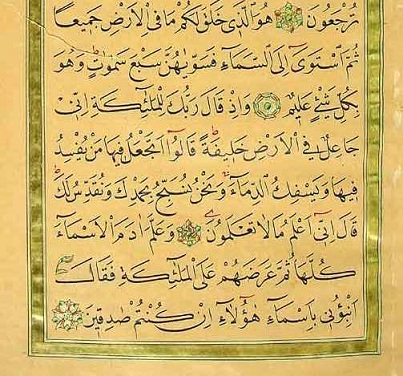 تُرْجَعُونَ هُوَ الَّذِى خَلَقَ لَكُمْ مَا فِى الْاَرْضِ جَمِيعًا
ثُمَّ اسْتَوٰٓى اِلَى السَّمَٓاءِ فَسَوّٰيهُنَّ سَبْعَ سَمٰوَاتٍ وَهُوَ
بِكُلِّ شَیْءٍ عَلِيمٌ وَاِذْ قَالَ رَبُّكَ لِلْمَلٰٓئِكَةِ اِنِّى
جَاعِلٌ فِى الْاَرْضِ خَلِيفَةً قَالُٓوا اَتَجْعَلُ فِيهَا مَنْ يُفْسِدُ
فِيهَا وَيَسْفِكُ الدِّمَٓاءَ وَنَحْنُ نُسَبِّحُ بِحَمْدِكَ وَنُقَدِّسُ لَكَ
قَالَ اِنِّٓى اَعْلَمُ مَا لَا تَعْلَمُونَ وَعَلَّمَ اٰدَمَ الْاَسْمَٓاءَ
كُلَّهَا ثُمَّ عَرَضَهُمْ عَلَى الْمَلٰٓئِكَةِ فَقَالَ
اَنْبِؤُ۫نِى بِاَسْمَٓاءِ هٰٓؤُ۬لَٓاءِ اِنْ كُنْتُمْ صَادِقِينَ